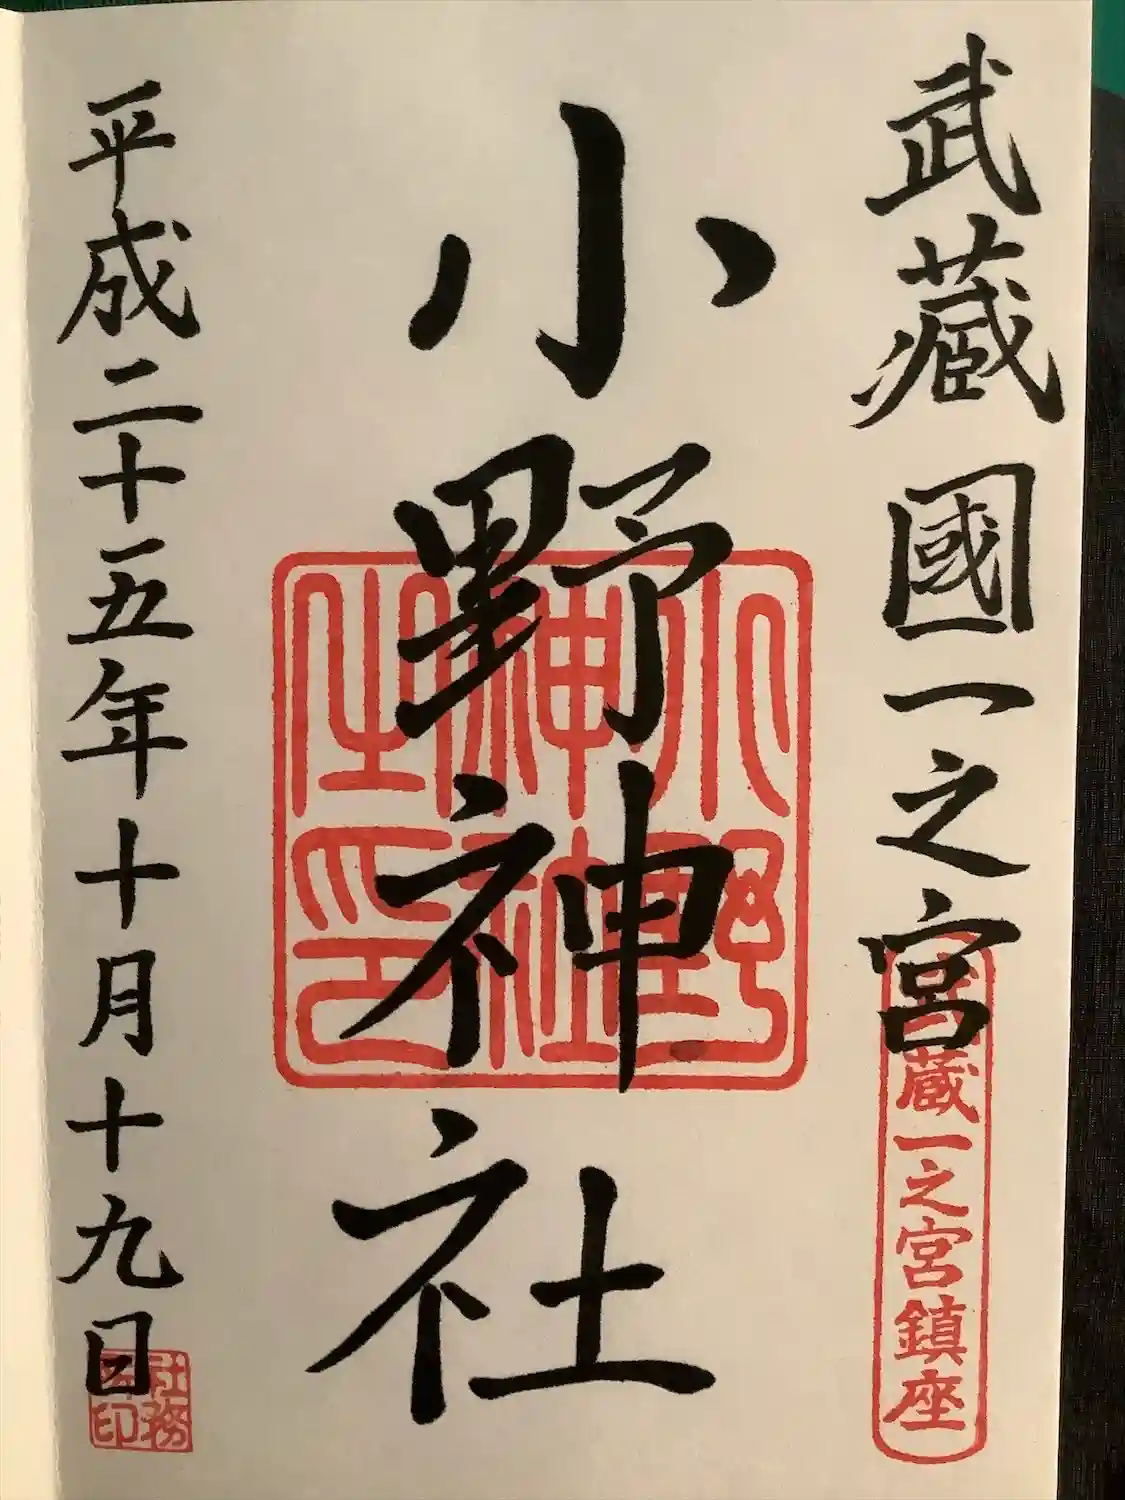 武藏國一之宮
武蔵一之宮鎮座
小野神社
小野神社之印
平成二十五年十月十九日
社務之印